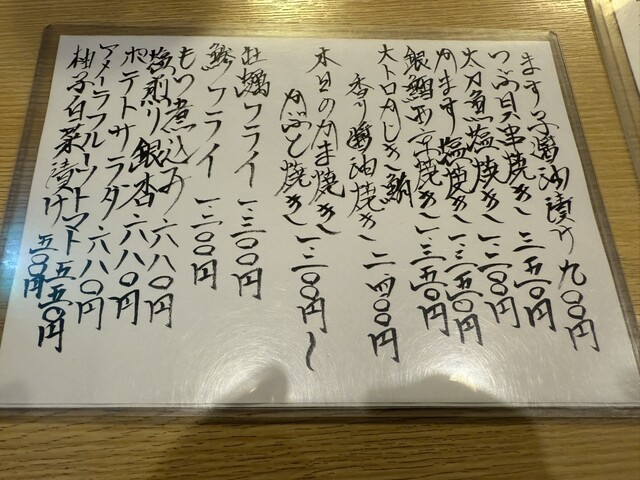 ます子醤油漬け 九〇〇円
つぶ貝串焼き 一、三五〇円
太刀魚塩焼き 一、二〇〇円
かます塩焼き 一、三五〇円
銀鱈西京焼き 一、三五〇円
大トロかじき鮪
香り醤油焼き 二、四〇〇円
本日のかま焼き
かぶと焼き 一、二〇〇円〜
牡蠣フライ 一、三〇〇円
鯵フライ 一、二〇〇円
もつ煮込み 六八〇円
塩煎り銀杏 六八〇円
ポテトサラダ 六八〇円
アメーラフルーツトマト 五五〇円
柚子白菜漬け 五〇〇円